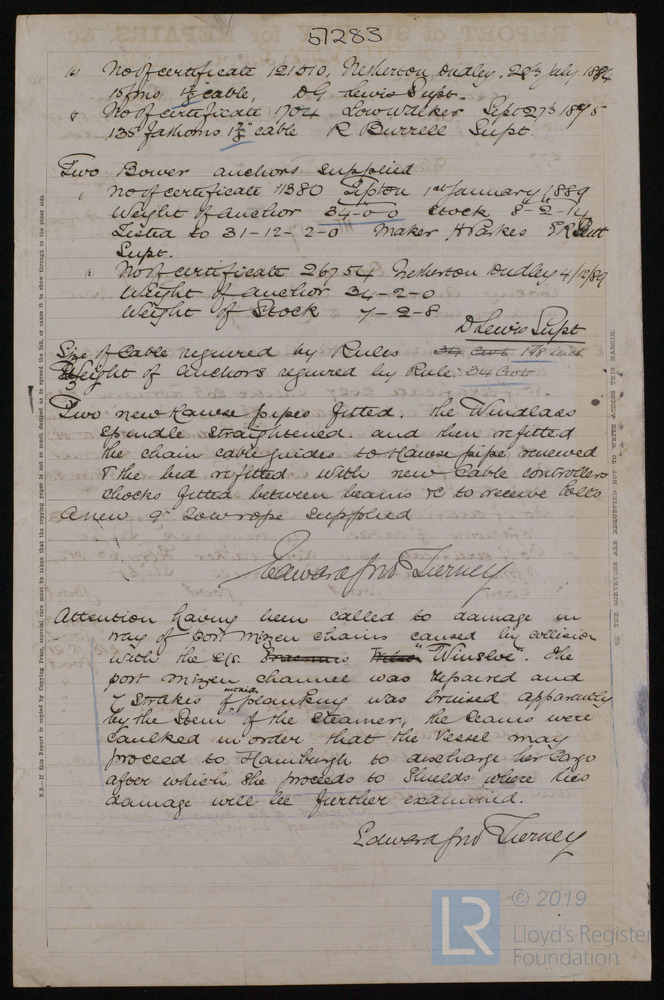 57283
No of certificate 121510, Netherton Dudley, 28th July 1894
15 fms 1 9/16 cable, D G Lewis Supt.
No of certificate 1704 Low Walker Sept 27th 1895
135 fathoms cable R Burrell Supt.
Two Bower anchors supplied
No of certificate 11380 Tipton 1st January 1889
Weight of anchor 34-0-0 Stock 8-2-14
Tested to 31-12-2-0 Maker H Parkes
Supt.
No of certificate 26754 Netherton Dudley 4/12/89
Weight of anchor 34-2-0
Weight of Stock 7-2-8
D Lewis Supt
Size of Cable required by Rules
Weight of anchors required by Rule 34 Cwt
Two new hawse pipes fitted. The Windlass
spindle straightened and then refitted
the chain cable guides to hawse pipe renewed
& the bed refitted with new cable controllers
chocks fitted between beams &c to receive bolts
A new 9" Towrope supplied
Edward Jno Tierney
Attention having been called to damage in
way of port mizen chains caused by collision
with the S/S "Winsloe". The
port mizen channel was repaired and
7 strakes of planking was bruised apparently
by the Stem of the Steamer, the seams were
caulked in order that the Vessel may
proceed to Hamburgh to discharge her Cargo
after which she proceeds to Shields where this
damage will be further examined.
Edward Jno Tierney
N.B.—If this Report is copied by Copying Press, especial care must be taken that the copying paper is not so much damped as to spread the ink, or cause it to show through to the other side.
THE SURVEYORS ARE REQUESTED NOT TO WRITE ACROSS THIS MARGIN.
LR
© 2019
Lloyd's Register
Foundation